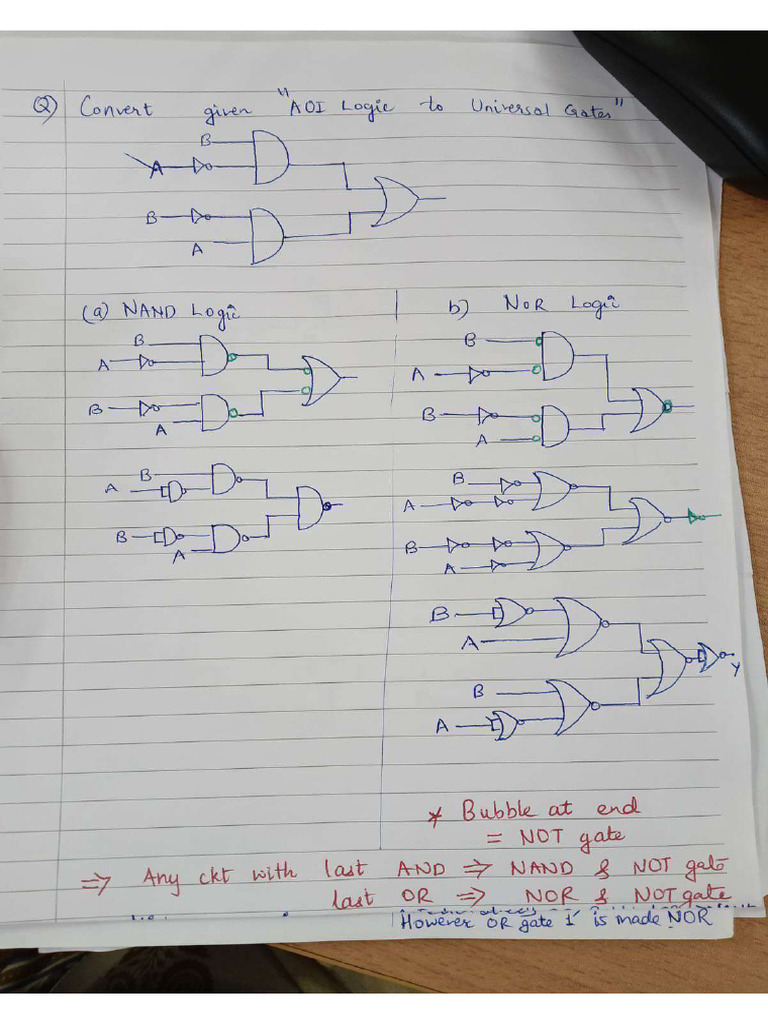 Q) Convert given "AOI Logic to Universal Gates"
B
A
B
A
(a) NAND Logic
B
A
B
A
B
A
B
A
b) NOR Logic
B
A
B
A
B
A
B
A
B
A
B
A
Y
* Bubble at end
= NOT gate
⇒ Any ckt with last AND ⇒ NAND & NOT gate
last OR ⇒ NOR & NOT gate
However OR gate 1 is made NOR